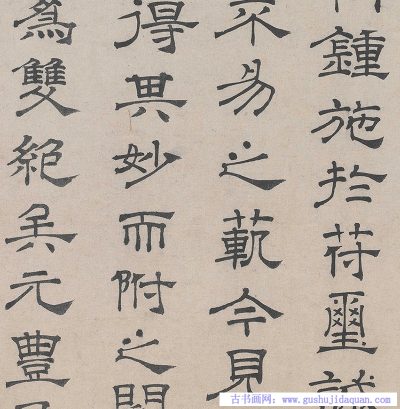 鍾施於苻璽誠
不易之範今見
得其妙而附之
爲雙絕矣元豐
古书画网：www.gushujidaquan.com